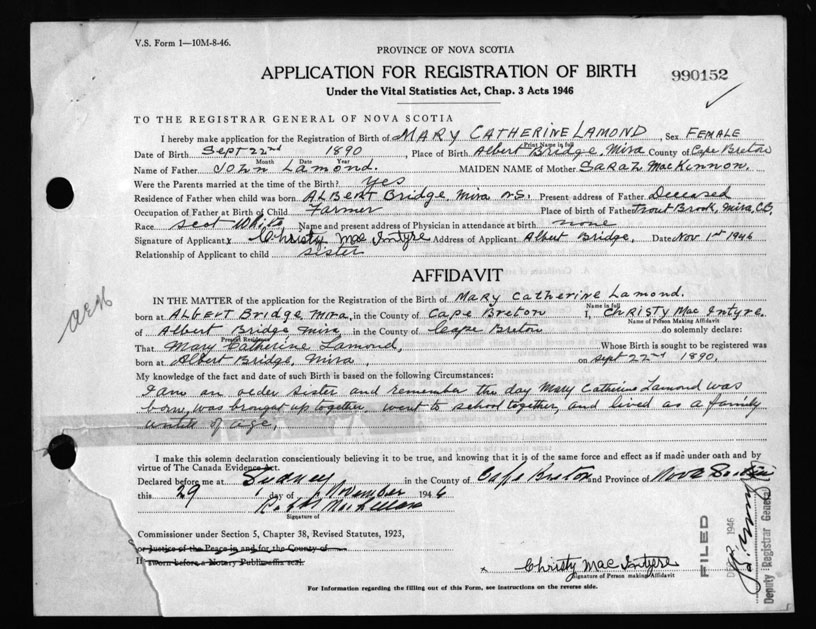 V.S. Form 1—10M-8-46.
PROVINCE OF NOVA SCOTIA
APPLICATION FOR REGISTRATION OF BIRTH
990152
Under the Vital Statistics Act, Chap. 3 Acts 1946
TO THE REGISTRAR GENERAL OF NOVA SCOTIA
I hereby make application for the Registration of Birth of MARY CATHERINE LAMOND, Sex FEMALE
Print Name in full
Date of Birth Sept 22nd 1890, Place of Birth Albert Bridge, Mira County of Cape Breton
Month Date Year
Name of Father John Lamond. MAIDEN NAME of Mother Sarah MacKinnon.
Were the Parents married at the time of the Birth? yes
Residence of Father when child was born Albert Bridge, Mira N.S. Present address of Father Deceased
Occupation of Father at Birth of Child Farmer Place of birth of Father Trout Brook, Mira, C.B.
Race Scot White, Name and present address of Physician in attendance at birth none
Signature of Applicant x Christy Mac Intyre Address of Applicant Albert Bridge, Date Nov 1st 1946
Relationship of Applicant to child sister
AFFIDAVIT
IN THE MATTER of the application for the Registration of the Birth of Mary Catherine Lamond.
Name in full
born at Albert Bridge Mira, in the County of Cape Breton I, Christy Mac Intyre.
Name of Person Making Affidavit
of Albert Bridge Mira in the County of Cape Breton do solemnly declare:
Present Residence
That Mary Catherine Lamond, Whose Birth is sought to be registered was
born at Albert Bridge, Mira, on Sept 22nd 1890.
My knowledge of the fact and date of such Birth is based on the following Circumstances:
I am an older sister and remember the day Mary Catherine Lamond was
born, was brought up together, went to school together, and lived as a family
untill of age.
I make this solemn declaration conscientiously believing it to be true, and knowing that it is of the same force and effect as if made under oath and by
virtue of The Canada Evidence Act.
Declared before me at Sydney in the County of Cape Breton and Province of Nova Scotia
this 29 day of November 1946
Signature of
Commissioner under Section 5, Chapter 38, Revised Statutes, 1923,
or Justice of the Peace in and for the County of
If sworn before a Notary Public affix seal.
x Christy Mac Intyre
Signature of Person making Affidavit
FILED
1946
Deputy Registrar General
For Information regarding the filling out of this Form, see instructions on the reverse side.